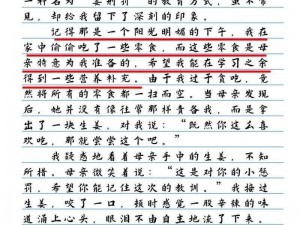 一种名为“姜刑”的教育方式，虽不常
见，却给我留下了深刻的印象。
记得那是一个阳光明媚的下午，我在
家中偷偷吃了一些零食，而这些零食是母
亲特意为我准备的，希望我能在学习之余
得到一些营养补充。由于我过于贪吃，竟
然将所有的零食都一扫而空。当母亲发现
后，她并没有像往常那样责备我，而是拿
出了一块生姜，对我说：“既然你这么喜
欢吃，那就尝尝这个吧。”
我疑惑地看着母亲手中的生姜，不知
所措。母亲微笑着说：“这是对你的小惩
罚，希望你能记住这次的教训。”我接过生
姜，咬了一口，顿时感觉一股辛辣的味
道涌上心头，眼泪不由自主地流了下来。